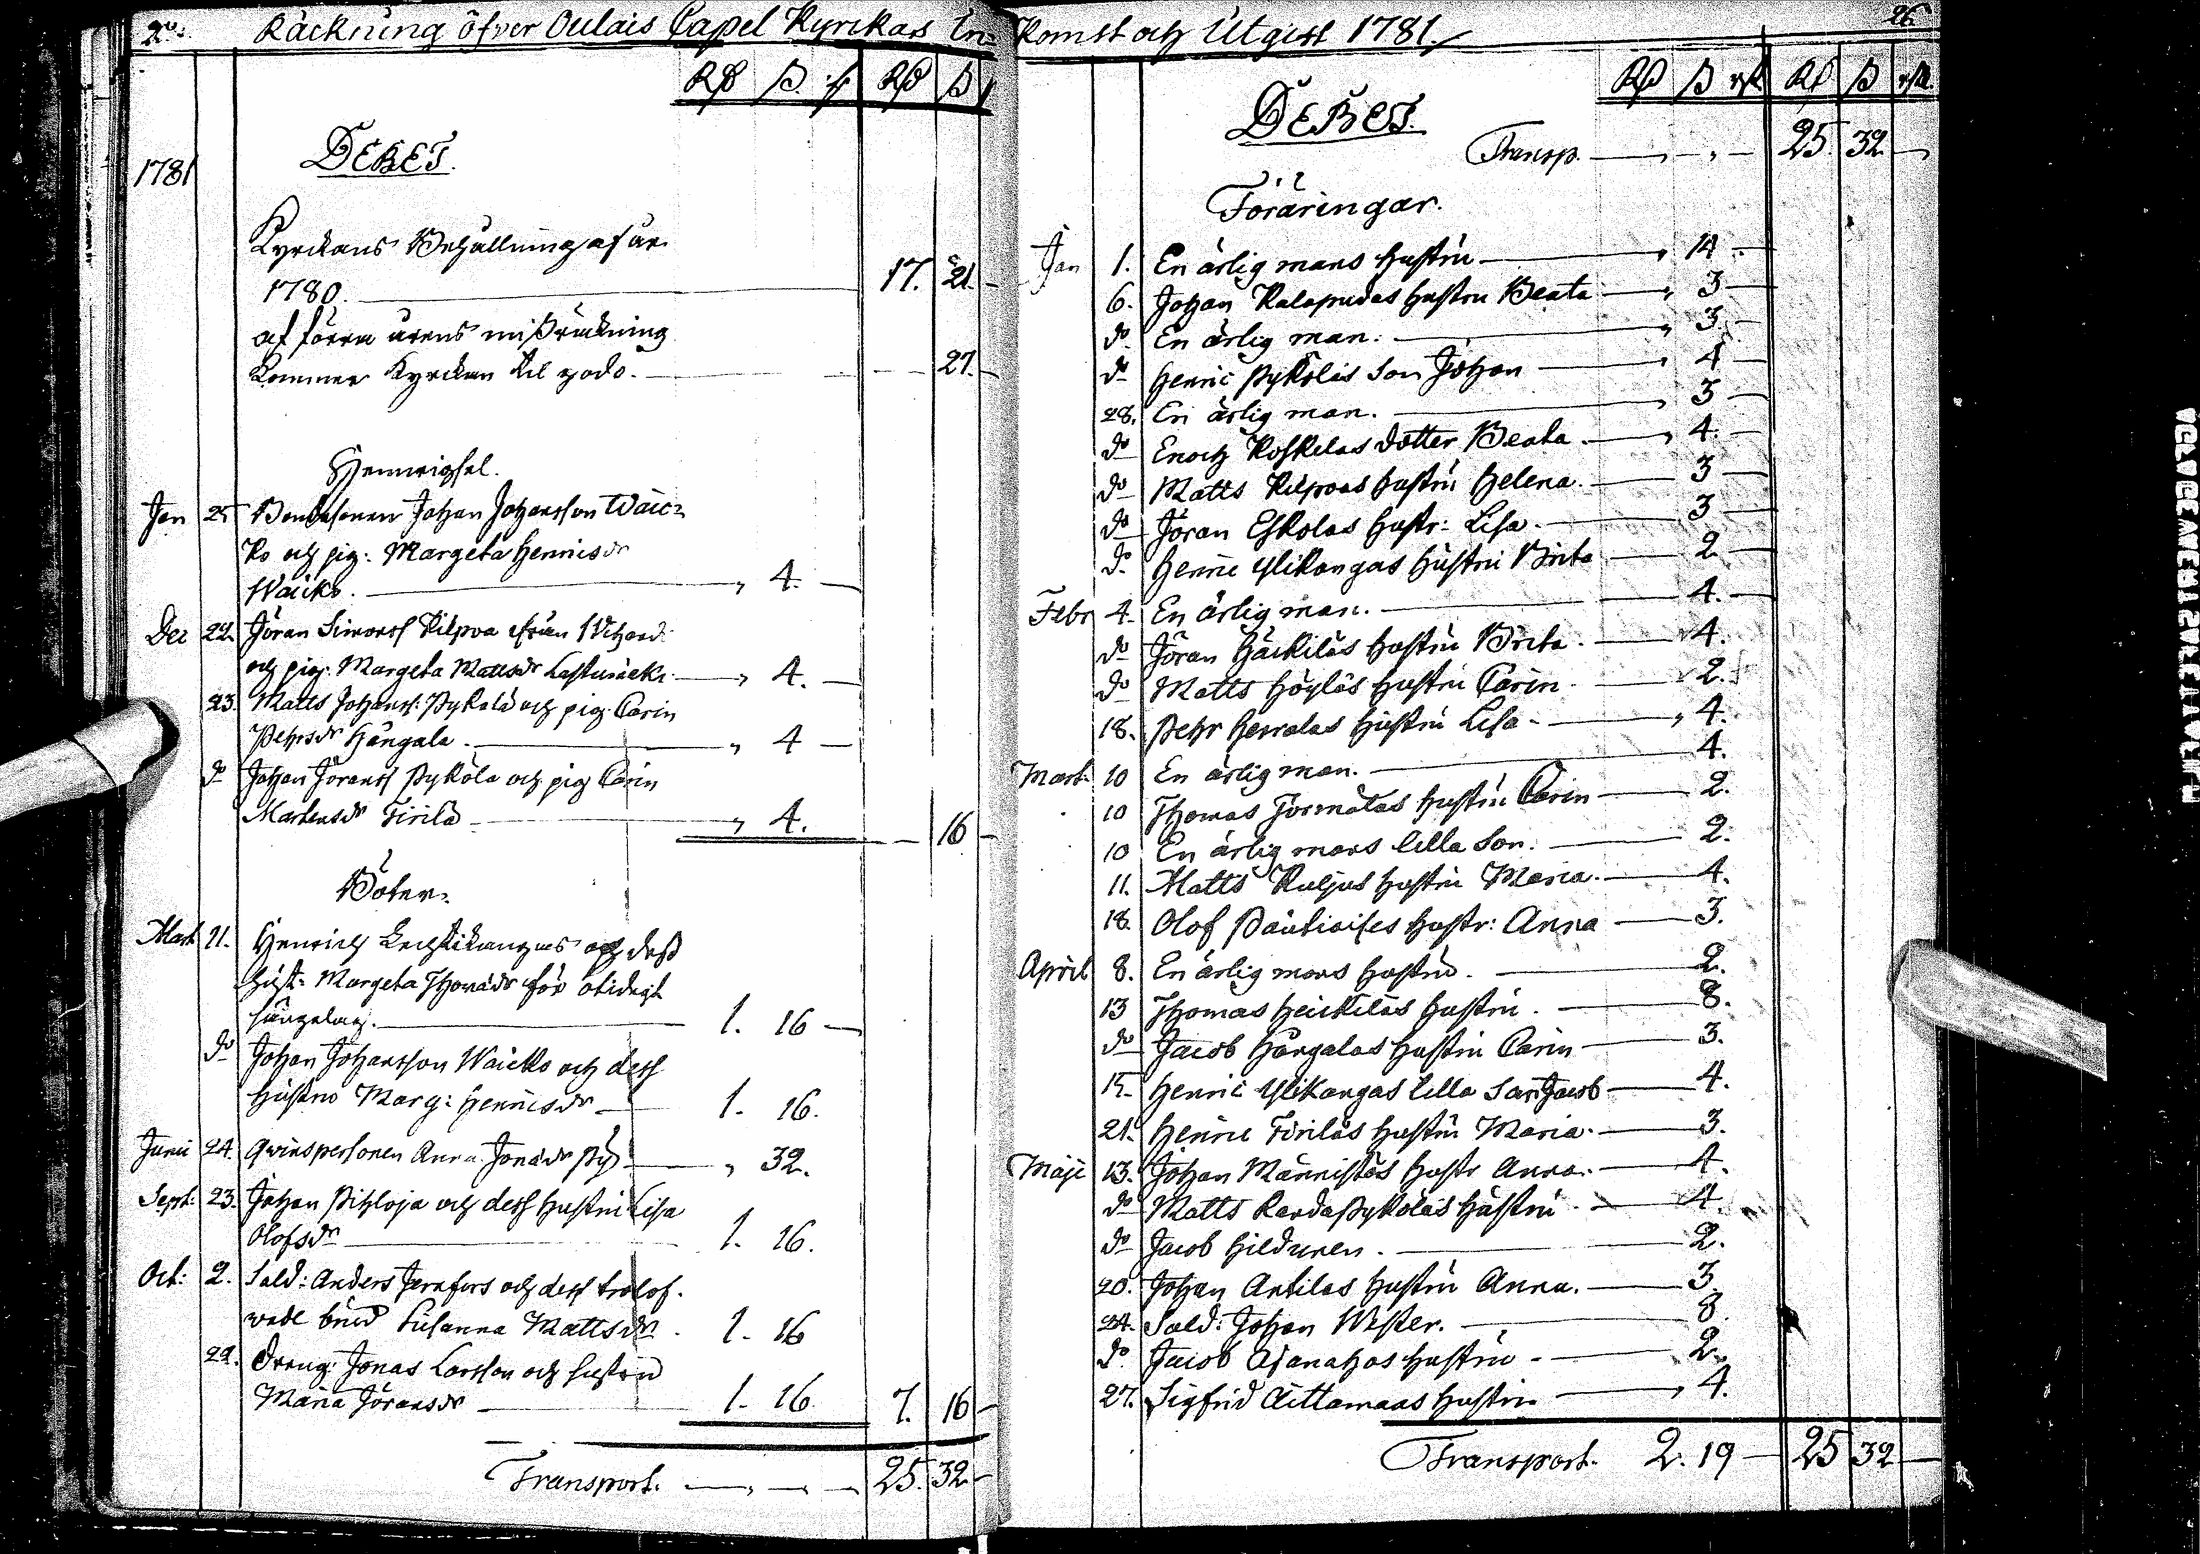 Räckning öfver Oulais Capel Kyrckas In-
Rd ß
DEBET.
1781
Kyrckans Behållning af år
1780. 17. 21.
af förra årens misräckning
kommer Kyrckan til godo. 27.
Hemmigsel.
Jan 25 Bondesonen Johan Johansson Wäic-
ko och pig: Margeta Henricsdr
Wäicko. 4.
Dec 22. Jöran Simonss Kilpua från
och pig: Margeta Mattsdr 4.
23. Matts Johanss: Pykälä och pig: Carin
Pehrsdr Hångala. 4
do Johan Jöranss Pyköla och pig Carin
Mårtensdr Firilä 4. 16
Böter.
Mart 11. Henrich Lechtikangas och dess
hust: Margeta Thomædr för otidigt
sängelag. 1. 16
do Johan Johansson Wäicko och dess
hustro Marg: Henricsdr 1. 16.
Junii 24. Qvinspersonen Anna Jonædr 32.
Sept: 23. Johan Pihloja och dess hustru Lisa
Olofsdr 1. 16.
Oct: 2. Sold: Anders Jernfors och dess trolof-
wade brud Susanna Mattsdr. 1. 16
22. Dreng: Jonas Larsson och hustru
Maria Jöransdr 1. 16. 7. 16
Transport. 25. 32
komst och Utgift 1781.
26.
Rd ß Rd ß
DEBET.
Transp. 25 32
Föräringar.
Jan 1. En ärlig mans hustru 14
6. Johan Kalapudas hustru Beata 3
do En ärlig man. 3.
do Henric Pyköläs Son Johan 4
28. En ärlig man. 3
do Enoch Koskelas dotter Beata. 4.
do Matts Kilpuas hustru Helena. 3
do Jöran Eskolas hustr: Lisa. 3
do Henric Ylikangas hustru Brita 2
Febr 4. En ärlig man. 4.
do Jöran Häickiläs hustru Brita. 4.
do Matts Höyläs hustru Carin. 2.
18. Pehr Herralas hustru Lisa 4.
Mart. 10 En ärlig man. 4.
10 Thomas Tormälas hustru Carin 2.
10 En ärlig mans lilla Son. 2.
11. Matts Kuljus hustru Maria. 4.
18. Olof hustr: Anna 3.
April 8. En ärlig mans hustru. 2.
13 Thomas Heickiläs hustru. 8.
do Jacob Hångalas hustru Carin 3.
15. Henric Ylikangas lilla Son Jacob 4.
21. Henric Firiläs hustru Maria. 3.
Maji 13. Johan Männistös hustr Anna. 4.
do Matts hustru 4.
do Jacob Hilduren. 2.
20. Johan Antilas hustru Anna. 3.
24. Sold: Johan Wester. 8
do Jacob hustru 2.
27. Sigfrid Aittamaas hustru 4.
Transport. 2. 19 25 32